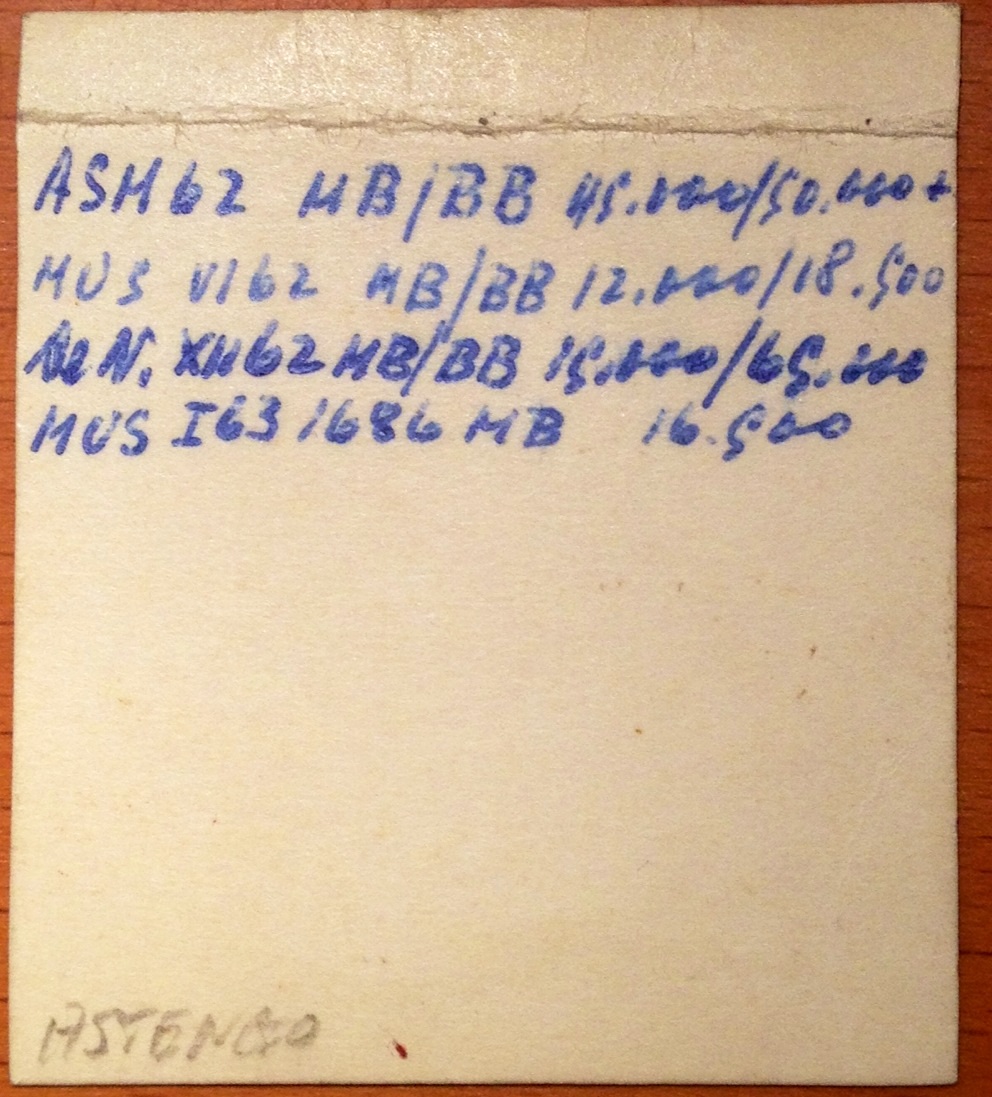 ASM 62 MB/BB 45.000/50.000+
MUS VI 62 MB/BB 12.000/18.500
DeN. XII 62 MB/BB 15.000/65.000
MUS I 63 1686 MB 16.500
ASTENGO